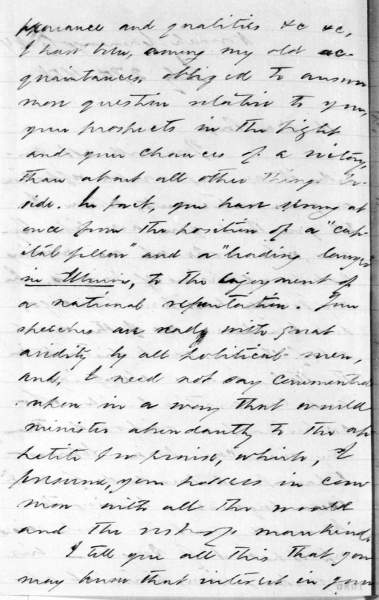 pearance and qualities &c &c,
I have been, among my old ac-
quaintances, obliged to answer
more question relative to you,
your prospects in the fight
and your chances of a victory,
than about all other things be-
side. In fact, you have sprung at
once from the position of a "cap-
ital fellow" and a "leading lawyer"
in Illinois, to the enjoyment of
a national reputation. Your
speeches are read with great
avidity by all political men,
and, I need not say commented
upon in a way that would
minister abundantly to the ap-
petite for praise, which, I
presume, you possess in com
mon with all the world
and the rest of mankind.
I tell you all this that you
may know that interest in your